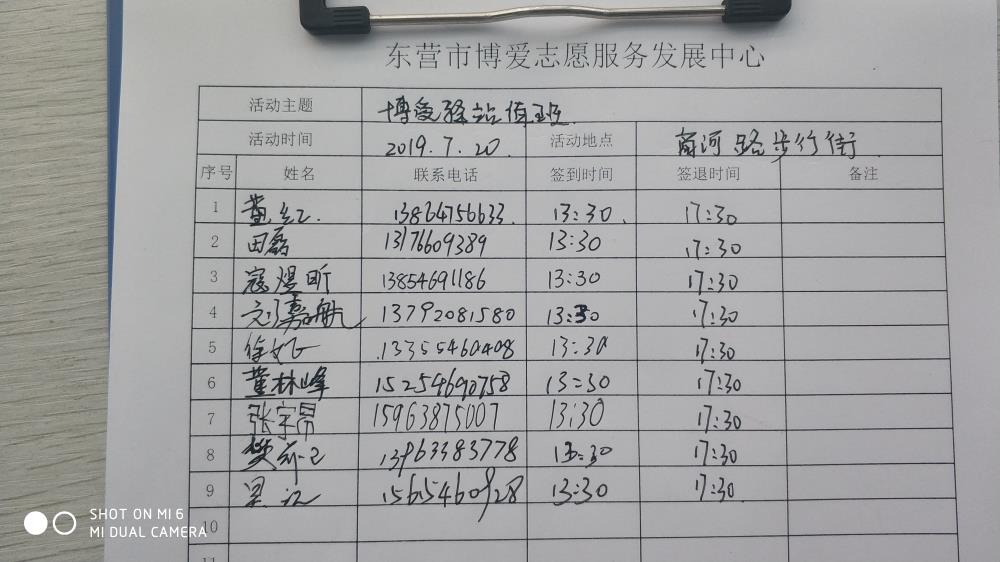 东营市博爱志愿服务发展中心
活动主题 博爱驿站值班
活动时间 2019.7.20. 活动地点 商河路步行街
序号 姓名 联系电话 签到时间 签退时间 备注
1 董红. 13864756633. 13:30. 17:30
2 田磊 13176609389 13:30 17:30
3 寇煜昕 13854691186 13:30 17:30
4 刘嘉航 13792081580 13:30 17:30
5 13355460408 13:30 17:30
6 董林峰 15254690758 13:30 17:30
7 张宇昂 15963875007 13:30 17:30
8 13963383778 13:30 17:30
9 15615460928 13:30 17:30
10
SHOT ON MI 6
MI DUAL CAMERA